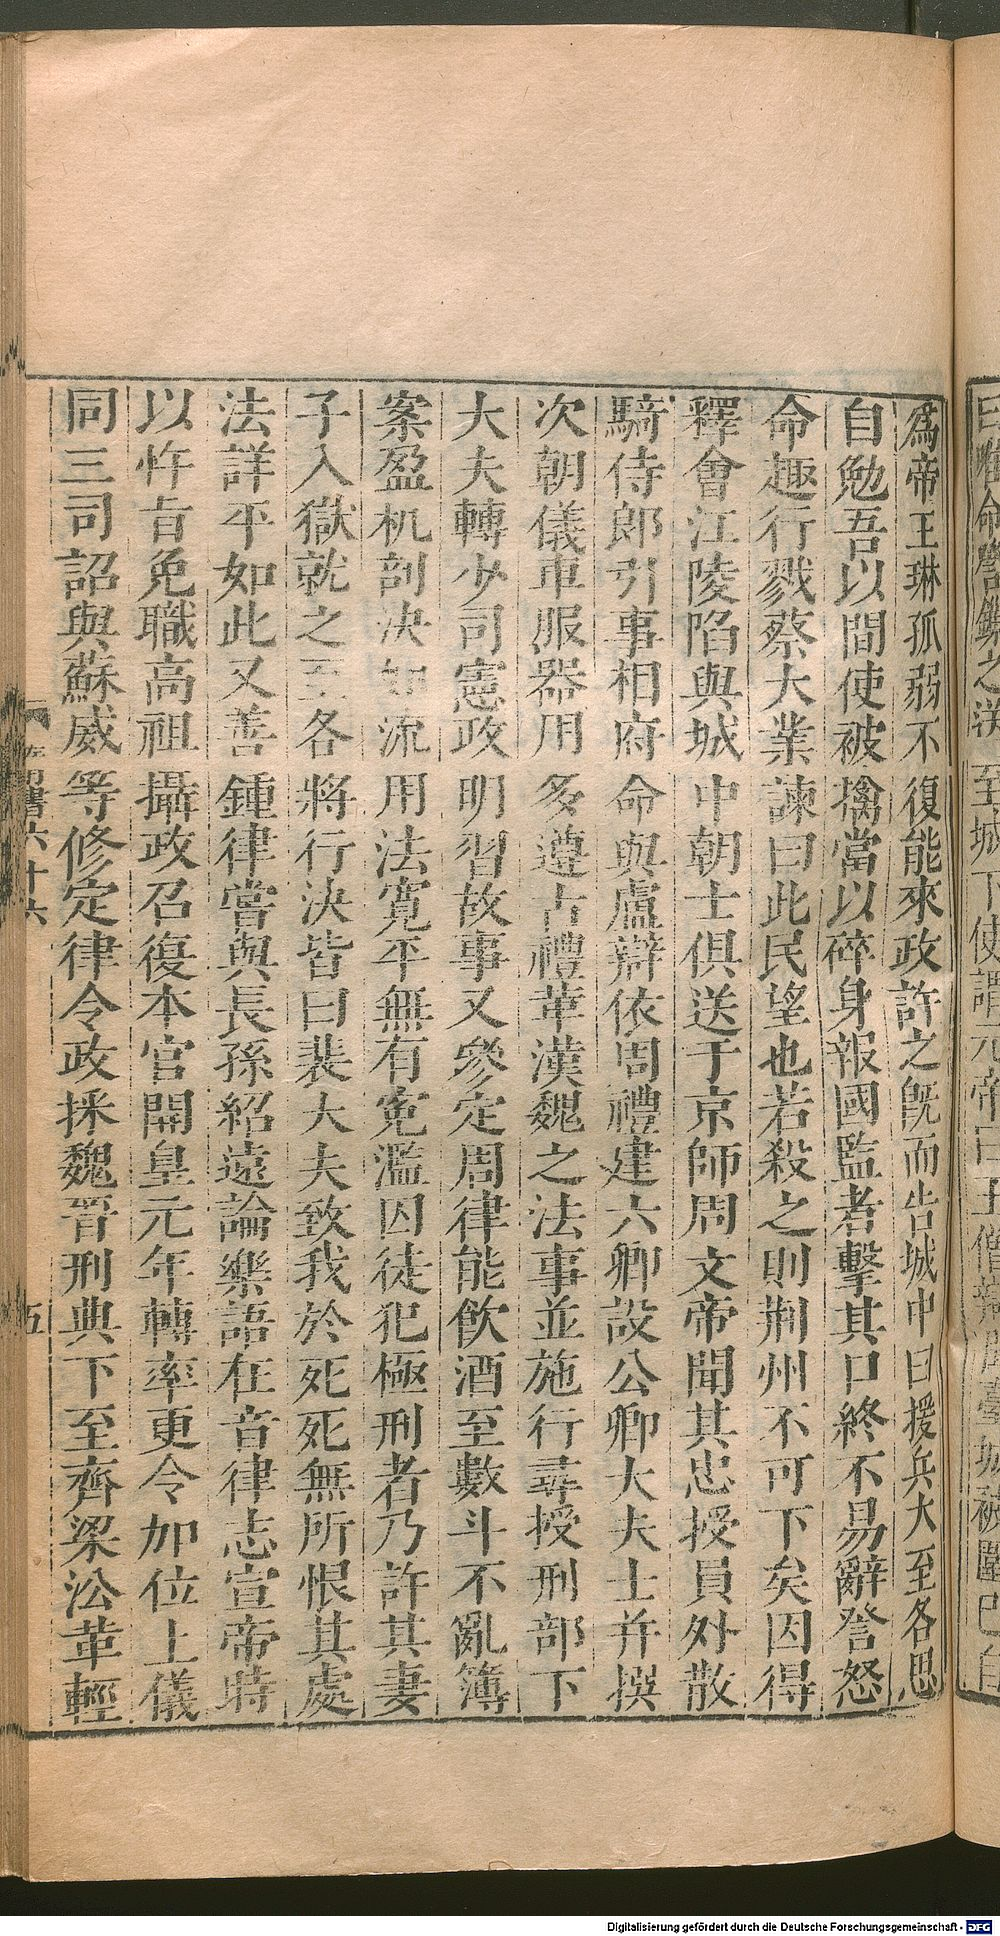 爲帝王琳孤弱不復能來政許之旣而告城中曰援兵大至各思
自勉吾以間使被擒當以碎身報國監者擊其口終不易辭詧怒
命趣行戮蔡大業諫曰此民望也若殺之則荆州不可下矣因得
釋會江陵陷與城中朝士俱送于京師周文帝聞其忠授員外散
騎侍郎引事相府命與盧辯依周禮建六卿設公卿大夫士并撰
次朝儀車服器用多遵古禮革漢魏之法事並施行尋授刑部下
大夫轉少司憲政明習故事又參定周律能飲酒至數斗不亂簿
案盈机剖決如流用法寬平無有寃濫囚徒犯極刑者乃許其妻
子入獄就之至冬將行決皆曰裴大夫致我於死死無所恨其處
法詳平如此又善鍾律嘗與長孫紹遠論樂語在音律志宣帝時
以忤旨免職高祖攝政召復本官開皇元年轉率更令加位上儀
同三司詔與蘇威等修定律令政採魏晉刑典下至齊梁沿革輕
書六十六
五
Digitalisierung gefördert durch die Deutsche Forschungsgemeinschaft - DFG